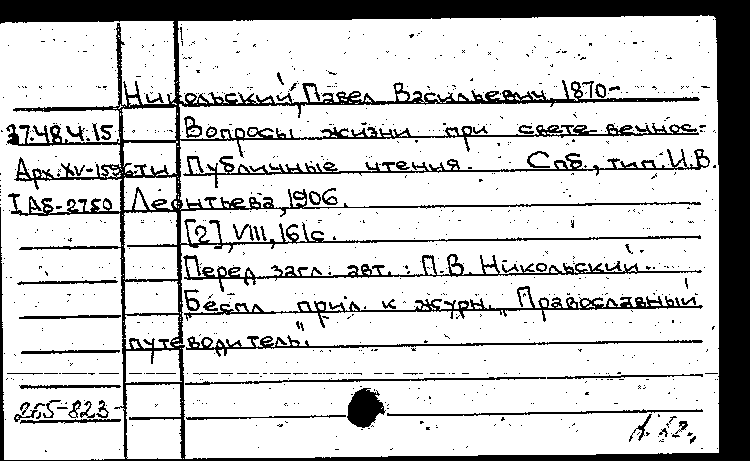 Никольский, Павел Васильевич, 1870-
37.48.4.15 Вопросы жизни при свете вечнос-
Арх.XV-1596 ти. Публичные чтения. Спб., тип. И.В.
I АБ-2750 Леонтьева, 1906.
[2], VIII, 161с.
Перед загл. авт.: П.В. Никольский.
"Беспл. прил. к журн. "Православный
путеводитель".
265-823